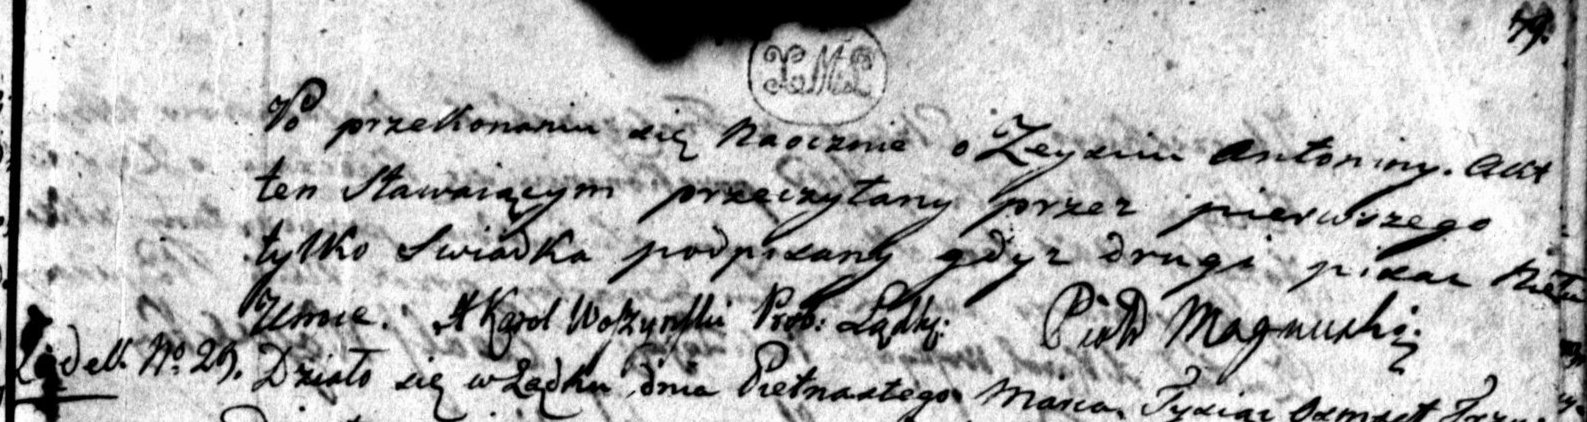 79.
X.M.L
Po przekonaniu się naocznie o Zeyściu Antoniny. Akt
ten Stawaiącym przeczytany przez pierwszego
tylko Swiadka podpisany gdyz drugi pisac nieu
Umie. X Karol Prob: Ządki: Piotr Magnuski
Lądek No 29. Działo się w Lądku dnia Pietnastego Marca Tysiąc Osmset